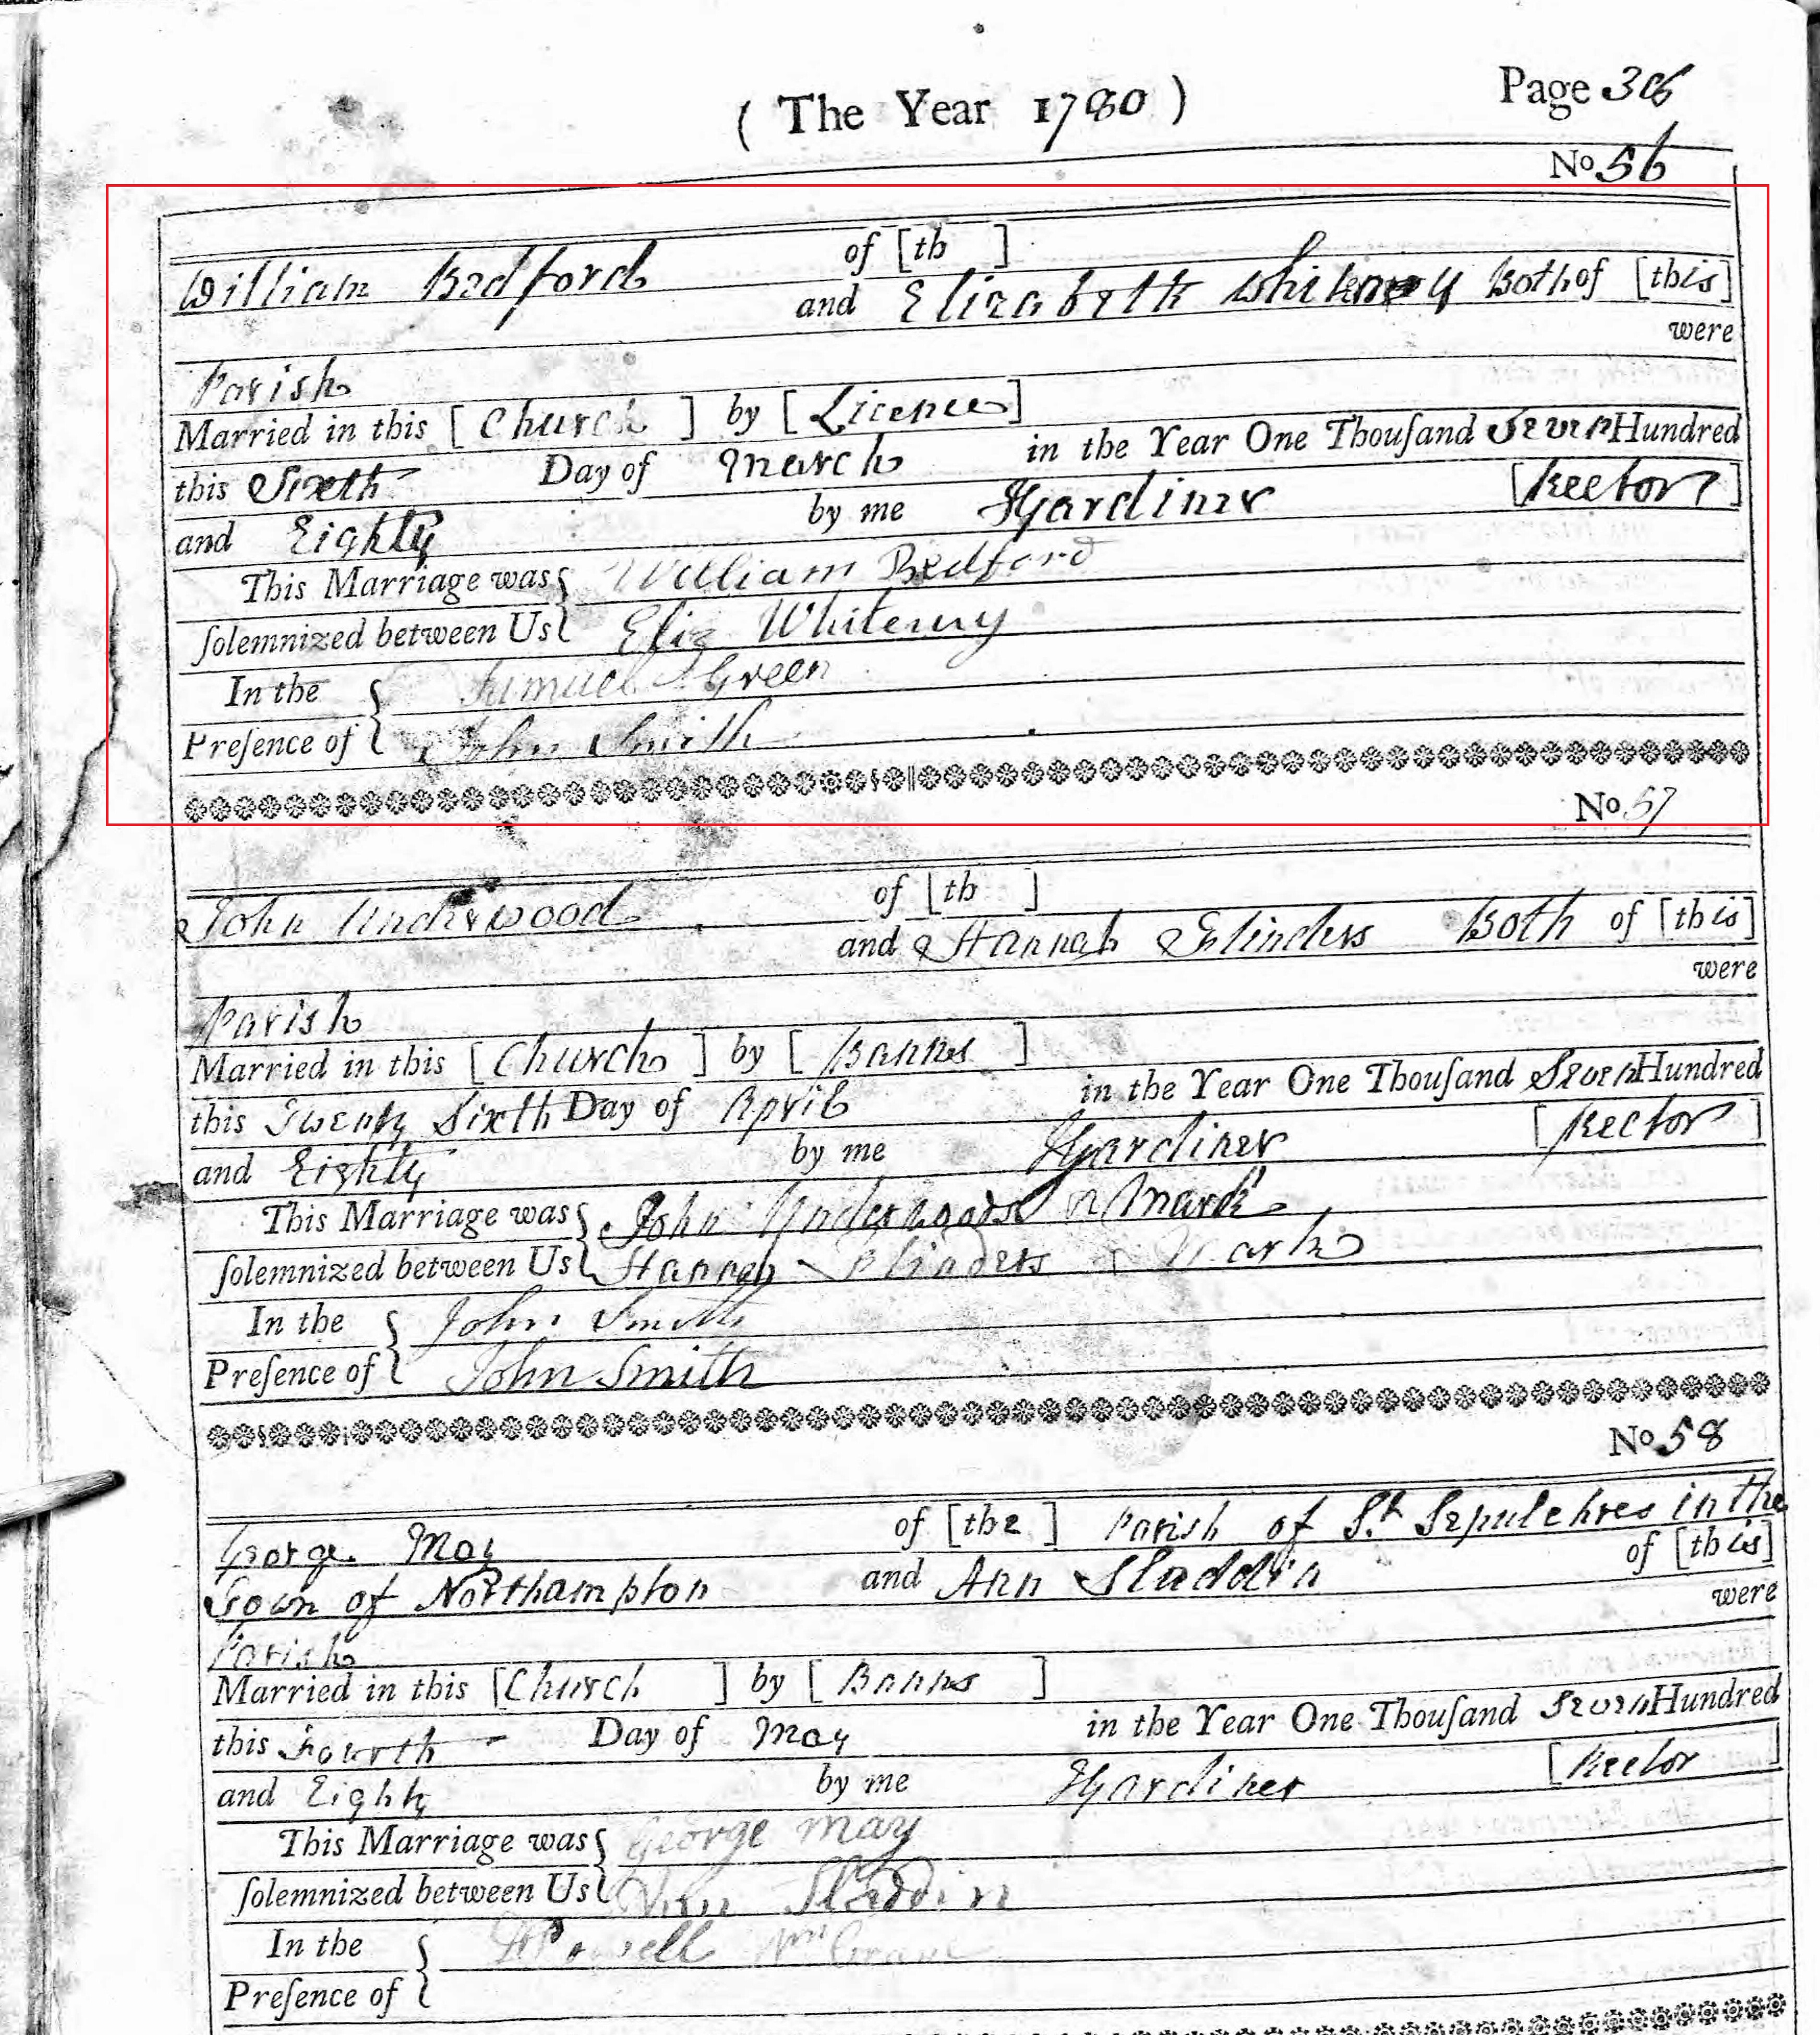 ( The Year 1780 )
Page 306
No 56
William Bedford of [th ]
and Elizabeth Both of [this]
were
Parish
Married in this [ Church ] by [ Licence ]
this Sixth Day of March in the Year One Thouſand Seven Hundred
and Eighty by me Gardiner [Rector]
This Marriage was { William Bedford
ſolemnized between Us { Eliz Whitemy
In the { Samuel Green
Preſence of { John Smith
No 57
John Underwood of [th ]
and Hannah Flinders Both of [this]
were
Parish
Married in this [ Church ] by [ Banns ]
this Twenty Sixth Day of April in the Year One Thouſand Seven Hundred
and Eighty by me Gardiner [ Rector ]
This Marriage was { John Underwoods Mark
ſolemnized between Us { Hannah Flinders Mark
In the { John Smith
Preſence of { John Smith
No 58
George May of [the ] Parish of St Sepulchres in the
Town of Northampton and Ann Sladdin of [this]
were
Parish
Married in this [Church ] by [ Banns ]
this Fourth Day of May in the Year One Thouſand Seven Hundred
and Eighty by me Gardiner [ Rector ]
This Marriage was { George May
ſolemnized between Us { Ann Sladdin
In the { Powell Wm
Preſence of {